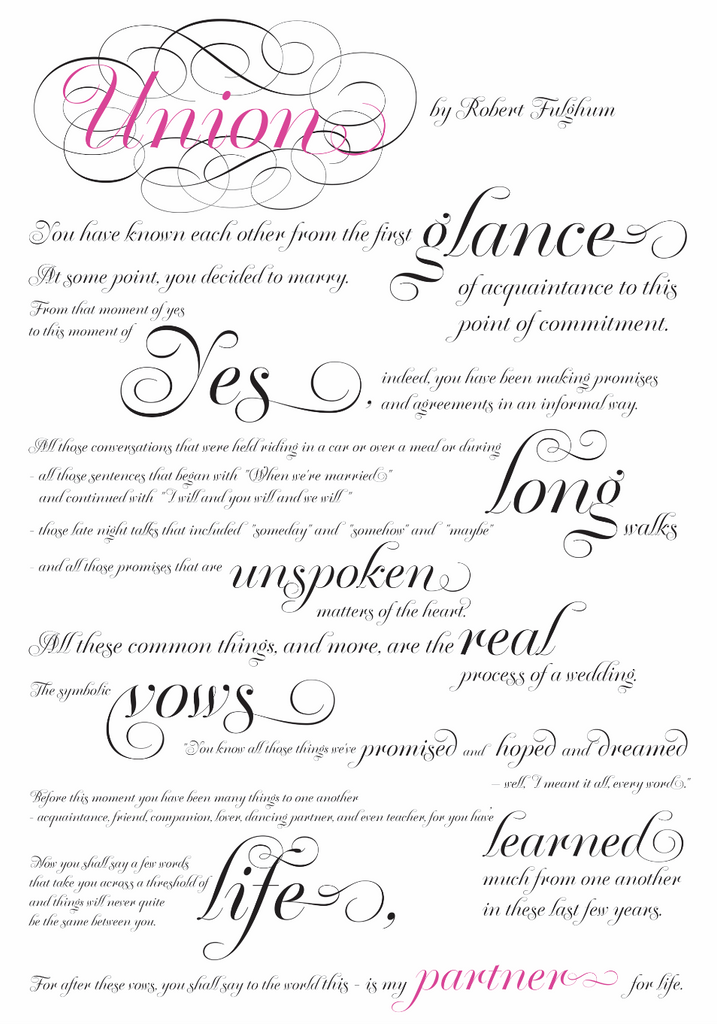 Union
by Robert Fulghum
You have known each other from the first glance
of acquaintance to this
point of commitment.
At some point, you decided to marry.
From that moment of yes
to this moment of
Yes,
indeed, you have been making promises
and agreements in an informal way.
All those conversations that were held riding in a car or over a meal or during
long
walks
- all those sentences that began with "When we're married"
and continued with "I will and you will and we will"
- those late night talks that included "someday" and "somehow" and "maybe"
- and all those promises that are unspoken
matters of the heart.
All these common things, and more, are the real
process of a wedding.
The symbolic vows
"You know all those things we've promised and hoped and dreamed
– well, "I meant it all, every word."
Before this moment you have been many things to one another
- acquaintance, friend, companion, lover, dancing partner, and even teacher, for you have
learned
much from one another
in these last few years.
Now you shall say a few words
that take you across a threshold of
and things will never quite
be the same between you.
life,
For after these vows, you shall say to the world this - is my partner for life.